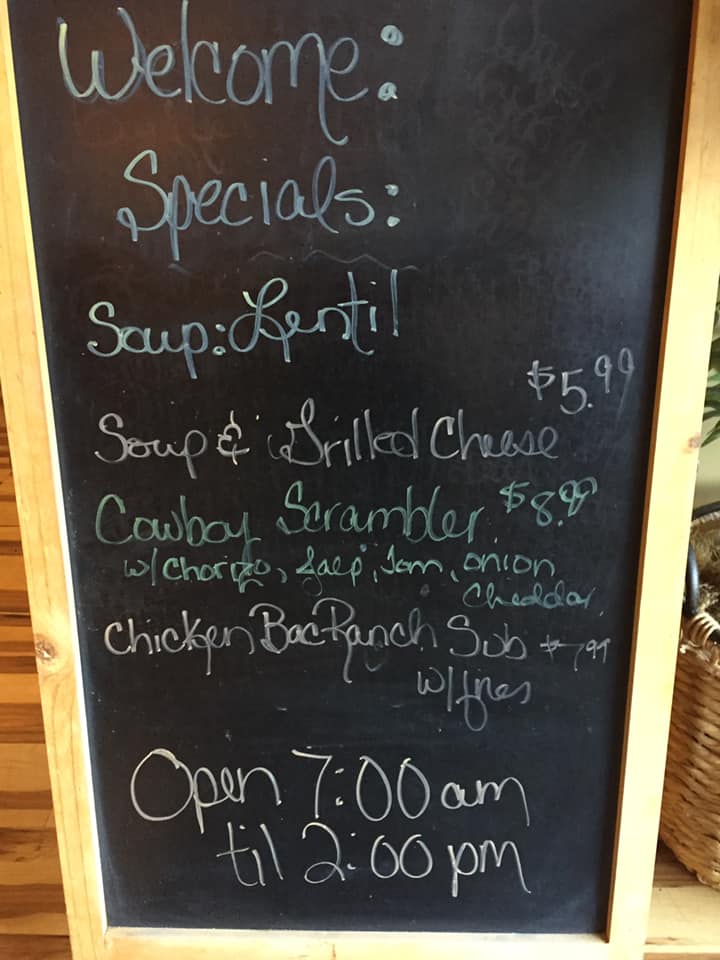 Welcome:
Specials:
Soup: Lentil
$5.99
Soup & Grilled Cheese
Cowboy Scrambler $8.99
w/ Chorizo, Jalp, Tom, onion
Cheddar
Chicken Bac Ranch Sub $7.99
w/ fries
Open 7:00 am
til 2:00 pm